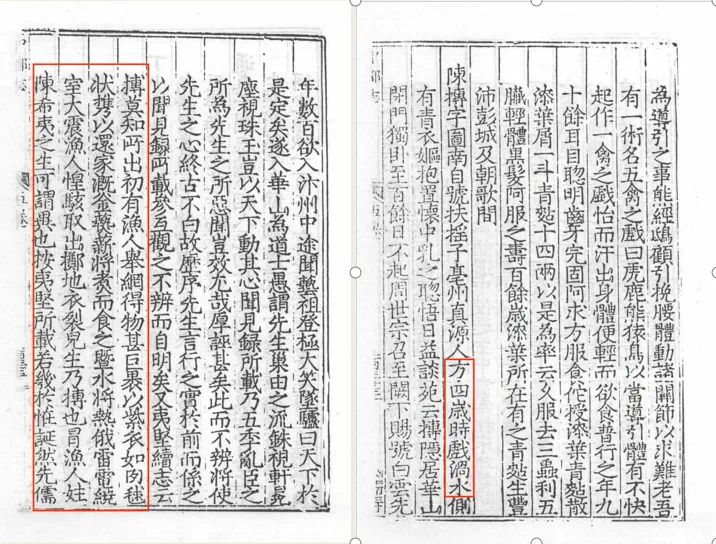 為導引之事能經鴟顧引挽腰體動諸關節以求難老吾
有一術名五禽之戲曰虎鹿熊猨鳥以當導引體有不快
起作一禽之戲怡而汗出身體便輕而欲食普行之年九
十餘耳目聰明齒牙完固阿求方服食佗授漆葉青黏散
漆葉屑一斗青黏十四兩以是為率云久服去三蟲利五
臟輕體黑髮阿服之壽百餘歲漆葉所在有之青黏生豐
沛彭城及朝歌間
陳摶字圖南自號扶搖子亳州真源人方四歲時戲渦水側
有青衣嫗抱置懷中乳之聰悟日益談苑云摶隱居華山
閉門獨卧至百餘日不起周世宗召至闕下賜號白雲先
年數百欲入汴州中途聞藝祖登極大笑墜驢曰天下於
是定矣遂入華山為道士愚謂先生巢由之流銖視軒冕
塵視珠玉豈以天下動其心聞見錄所載乃五季亂臣之
所為先生之所惡聞豈效尤哉厚誣甚矣此而不辨將使
先生之心終古不白故歷序先生言行之實於前而係之
以聞見錄所載參互觀之不辨而自明矣又夷堅續志云
摶莫知所出初有漁人舉網得物甚巨裹以紫衣如肉毬
狀擕以還家溉釡爇薪將煮而食之暨水將熱俄雷電繞
室大震漁人惶駭取出擲地衣裂兒生乃摶也冒漁人姓
陳希夷之生可謂異也按夷堅所載若幾於怪誕然先儒